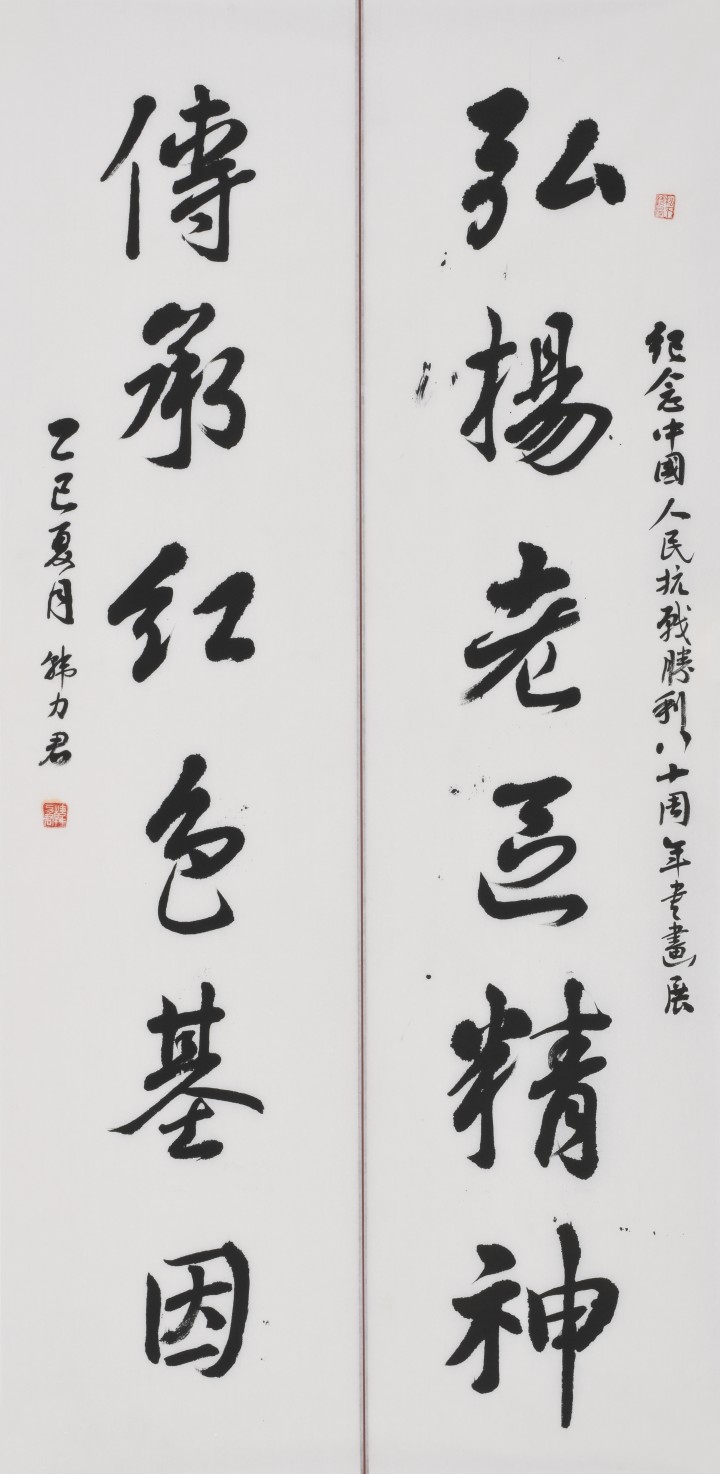 紀念中國人民抗戰勝利八十周年書畫展
弘揚老區精神
傳承紅色基因
乙巳夏月 韩力君